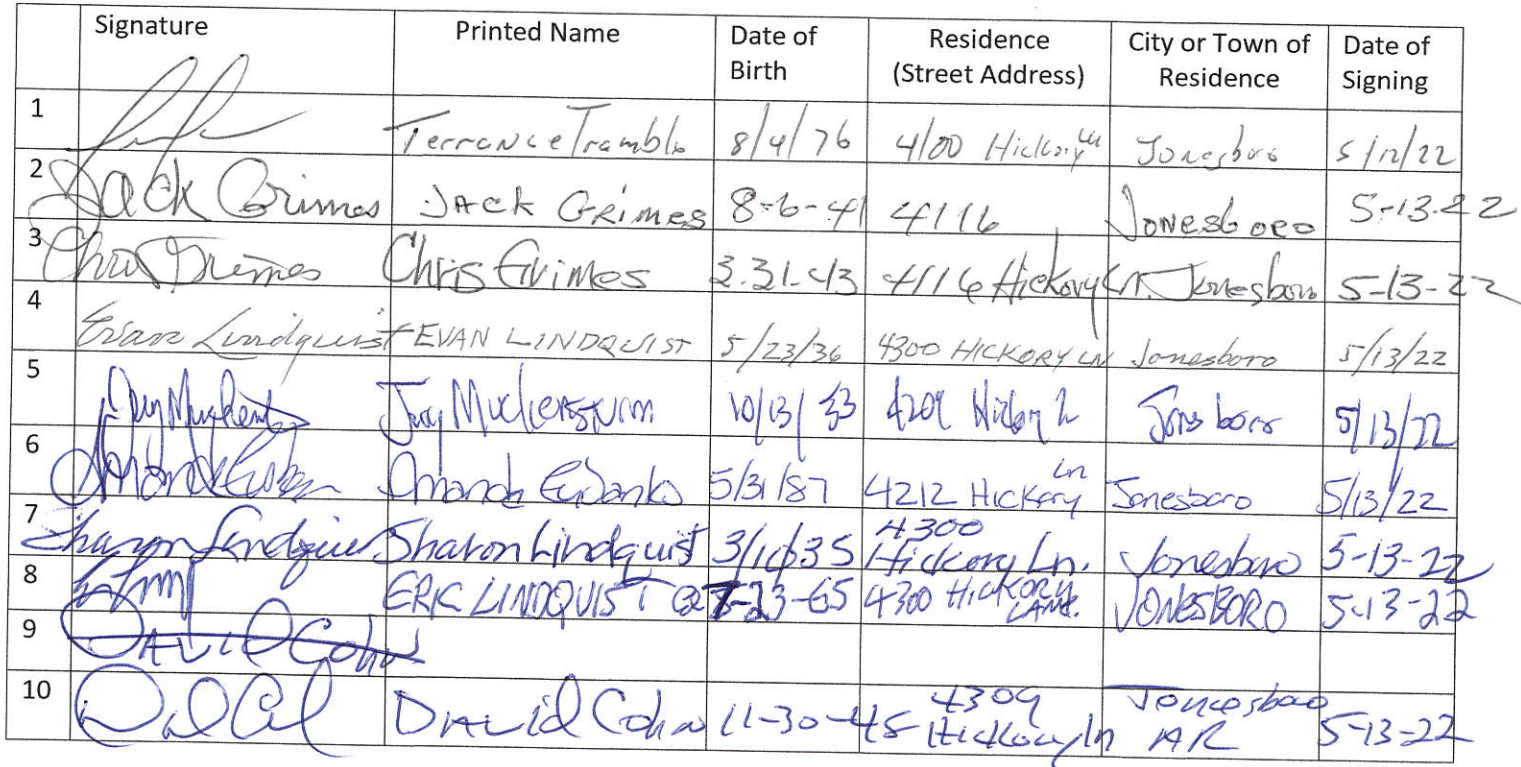 Signature Printed Name Date of Birth Residence (Street Address) City or Town of Residence Date of Signing
1 Terrance Tramble 8/4/76 4100 Hickory Ln Jonesboro 5/12/22
2 Jack Grimes JACK GRIMES 8-6-41 4116 Jonesboro 5-13-22
3 Chris Grimes Chris Grimes 3.31-43 4116 Hickory Ln. Jonesboro 5-13-22
4 Evan Lindquist EVAN LINDQUIST 5/23/36 4300 HICKORY LN Jonesboro 5/13/22
5 10/13/ 4209 Jonesboro 5/13/22
6 Amanda Eubanks 5/31/87 4212 Hickory Ln Jonesboro 5/13/22
7 Sharon Lindquist Sharon Lindquist 4300 Hickory Ln. Jonesboro 5-13-22
8 ERIC LINDQUIST 4300 HICKORY LANE. JONESBORO 5-13-22
9 DAVID Cohn
10 David Cohn 11-30-45 4309 Hickory ln Jonesboro AR 5-13-22